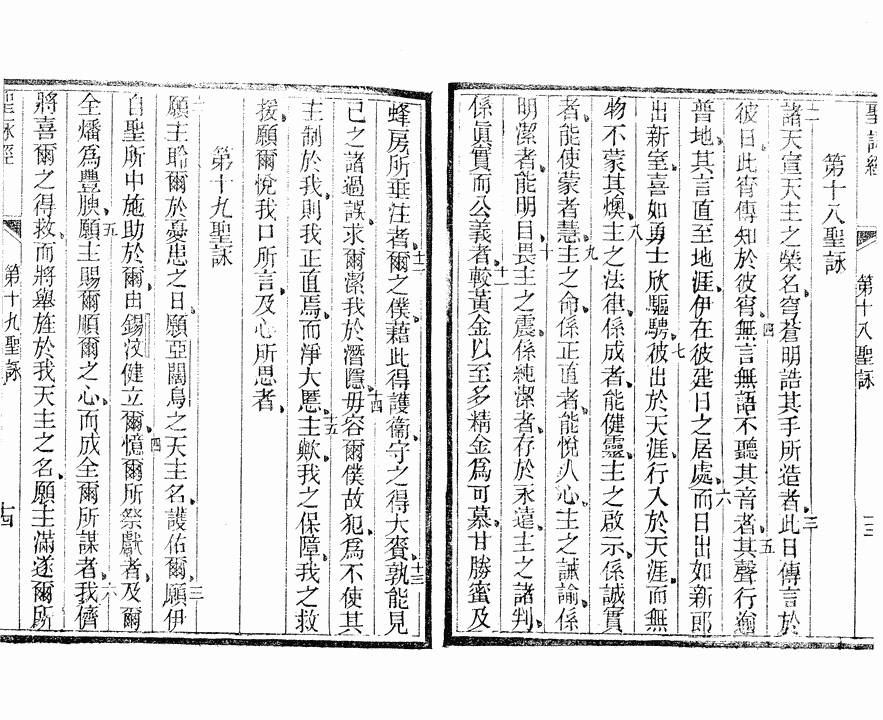 聖詠經
第十八聖詠
十三
第十八聖詠
二諸天宣天主之榮名穹蒼明誥其手所造者三此日傳言於
彼日此宵傳知於彼宵四無言無語不聽其音者五其聲行逾
普地其言直至地涯伊在彼建日之居處六而日出如新郎
出新室喜如勇士欣驅騁七彼出於天涯行入於天涯而無
物不蒙其燠八主之法律係成者能健靈主之啟示係誠實
者能使蒙者慧九主之命係正直者能悅人心主之誡諭係
明潔者能明目十畏主之震係純潔者存於永遠主之諸判
係眞實而公義者十一較黃金以至多精金爲可慕甘勝蜜及
蜂房所垂注者十二爾之僕藉此得護衞守之得大賚十三孰能見
己之諸過誤求爾潔我於潛隱十四毋容爾僕故犯爲不使其
主制於我則我正直焉而淨大慝十五主歟我之保障我之救
援願爾悅我口所言及心所思者
第十九聖詠
二願主聆爾於憂患之日願亞闊烏之天主名護佑爾三願伊
自聖所中施助於爾由錫汶健立爾四憶爾所祭獻者及爾
全燔爲豐腴五願主賜爾順爾之心而成全爾所謀者六我儕
將喜爾之得救而將舉旌於我天主之名願主滿遂爾所
聖詠經
第十九聖詠
十四